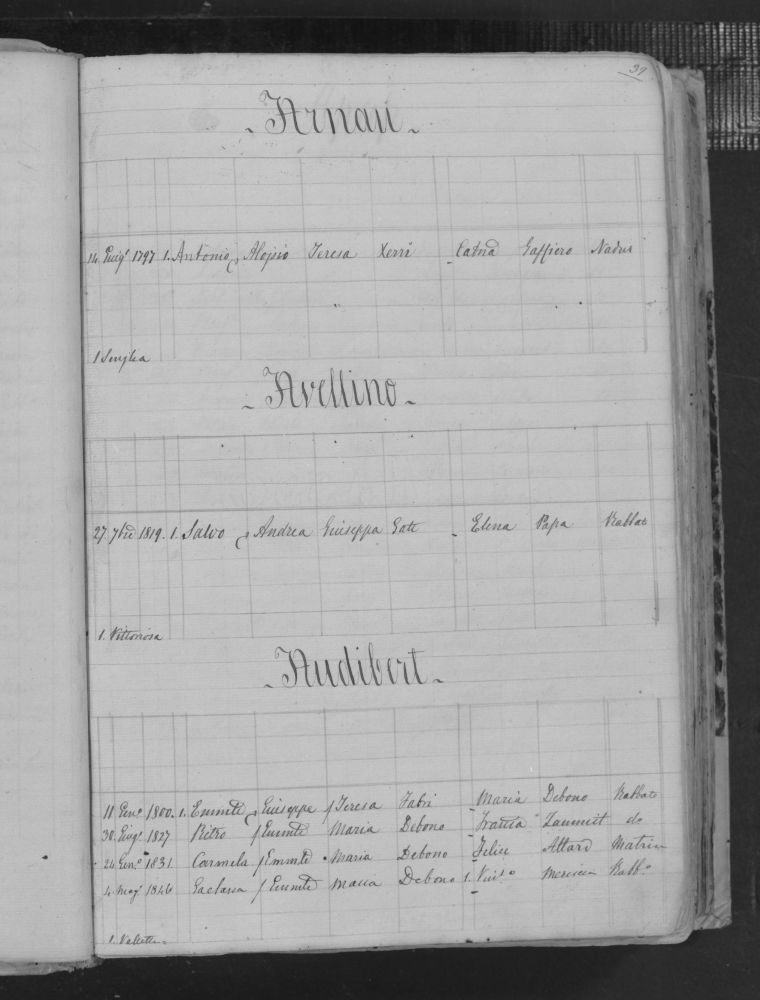 39
- Arnau -
14 Giug.º 1797 1. Antonio, Aloisio Teresa Xerri - Catnã Gaffiero Nadur
1 Senglea
- Avellino -
27 7bre 1819. 1. Salvo, Andrea Giuseppa Gatt - Elena Papa Rabbato
1. Vittoriosa
- Audibert -
11 Gen.º 1800. 1. Emmle, Giuseppe / Teresa Fabri - Maria Debono Rabbato
30 Giug.º 1827 Pietro / Emmle Maria Debono - Zammitt do
24 Gen.º 1831. Carmela / Emmle Maria Debono - Felice Attard Matrice
4 Mag.º 1846 / Emmle Maria Debono 1. Rabb.º
1. Valletta